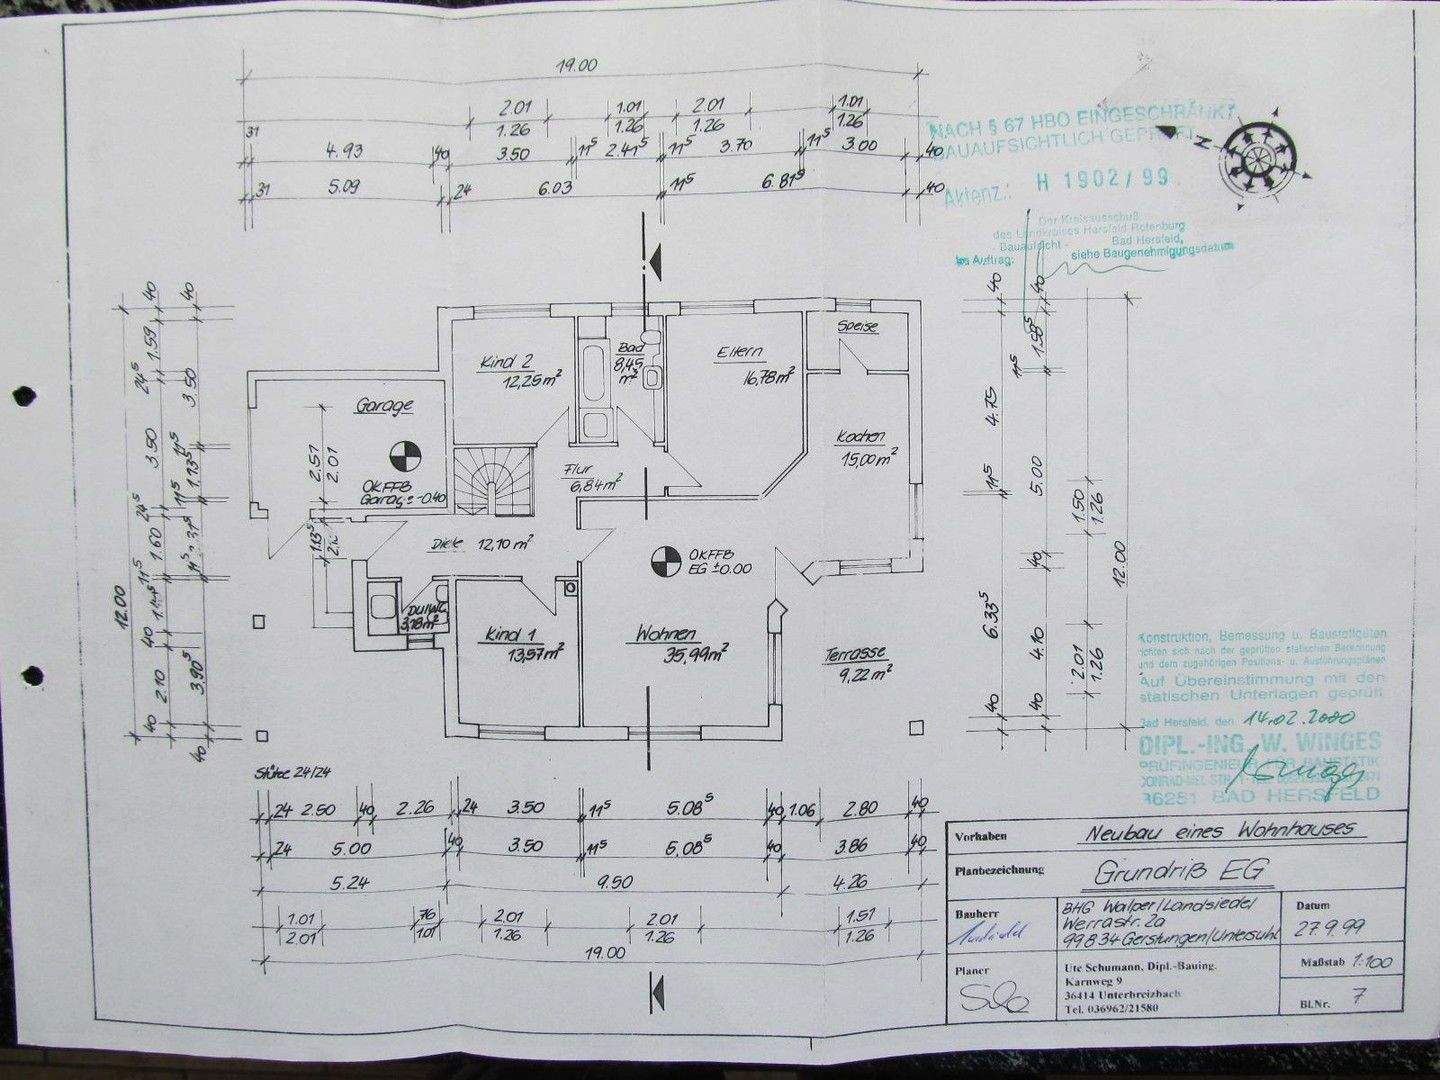 19.00
2.01 1.01 2.01 1.01
1.26 1.26 1.26 1.26
31 4.93 40 3.50 11⁵ 2.41⁵ 11⁵ 3.70 11⁵ 3.00 40
31 5.09 24 6.03 11⁵ 6.81⁵ 40
NACH § 67 HBO EINGESCHRÄNKT
BAUAUFSICHTLICH GEPRÜFT
Aktenz.: H 1902/99
Der Kreisausschuß
des Landkreises Hersfeld Rotenburg
Bauaufsicht - Bad Hersfeld,
Im Auftrag: siehe Baugenehmigungsdatum
N
40 1.59 24⁵ 3.50 24⁵ 1.60 11⁵ 40 2.10 40
40 3.50 11⁵ 1.13⁵ 11⁵ 11⁵ 3.90⁵ 40
12.00
Kind 2
12,25m²
Bad
8,45
m²
Eltern
16,78m²
Speise
Kochen
15,00m²
Garage
OKFFB
Garage -0.40
2.51
2.01
1.13⁵
Flur
6,84m²
Diele 12,10m²
OKFFB
EG ±0.00
DU/WC
3,18m²
Kind 1
13,57m²
Wohnen
35,99m²
Terrasse
9,22m²
40 4.75 11⁵ 6.33⁵ 40
40 1.58⁵ 11⁵ 5.00 40 4.10 40
1.50
1.26
2.01
1.26
12.00
Stütze 24/24
24 2.50 40 2.26 24 3.50 11⁵ 5.08⁵ 40 1.06 2.80 40
24 5.00 40 3.50 11⁵ 5.08⁵ 40 3.86 40
5.24 9.50 4.26
1.01 76 2.01 2.01 1.51
2.01 1.01 1.26 1.26 1.26
19.00
Konstruktion, Bemessung u. Baustoffgüten
richten sich nach der geprüften statischen Berechnung
und dem zugehörigen Positions- u. Ausführungsplänen
Auf Übereinstimmung mit den
statischen Unterlagen geprüft
Bad Hersfeld, den 14.02.2000
DIPL.-ING. W. WINGES
PRÜFINGENIEUR FÜR BAUSTATIK
36251 BAD HERSFELD
Vorhaben Neubau eines Wohnhauses
Planbezeichnung Grundriß EG
Bauherr
BHG Walper/Landsiedel
Werrastr. 2a
99834 Gerstungen/Untersuhl
Datum
27.9.99
Planer
Ute Schumann, Dipl.-Bauing.
Karnweg 9
36414 Unterbreizbach
Tel. 036962/21580
Maßstab 1:100
Bl.Nr. 7